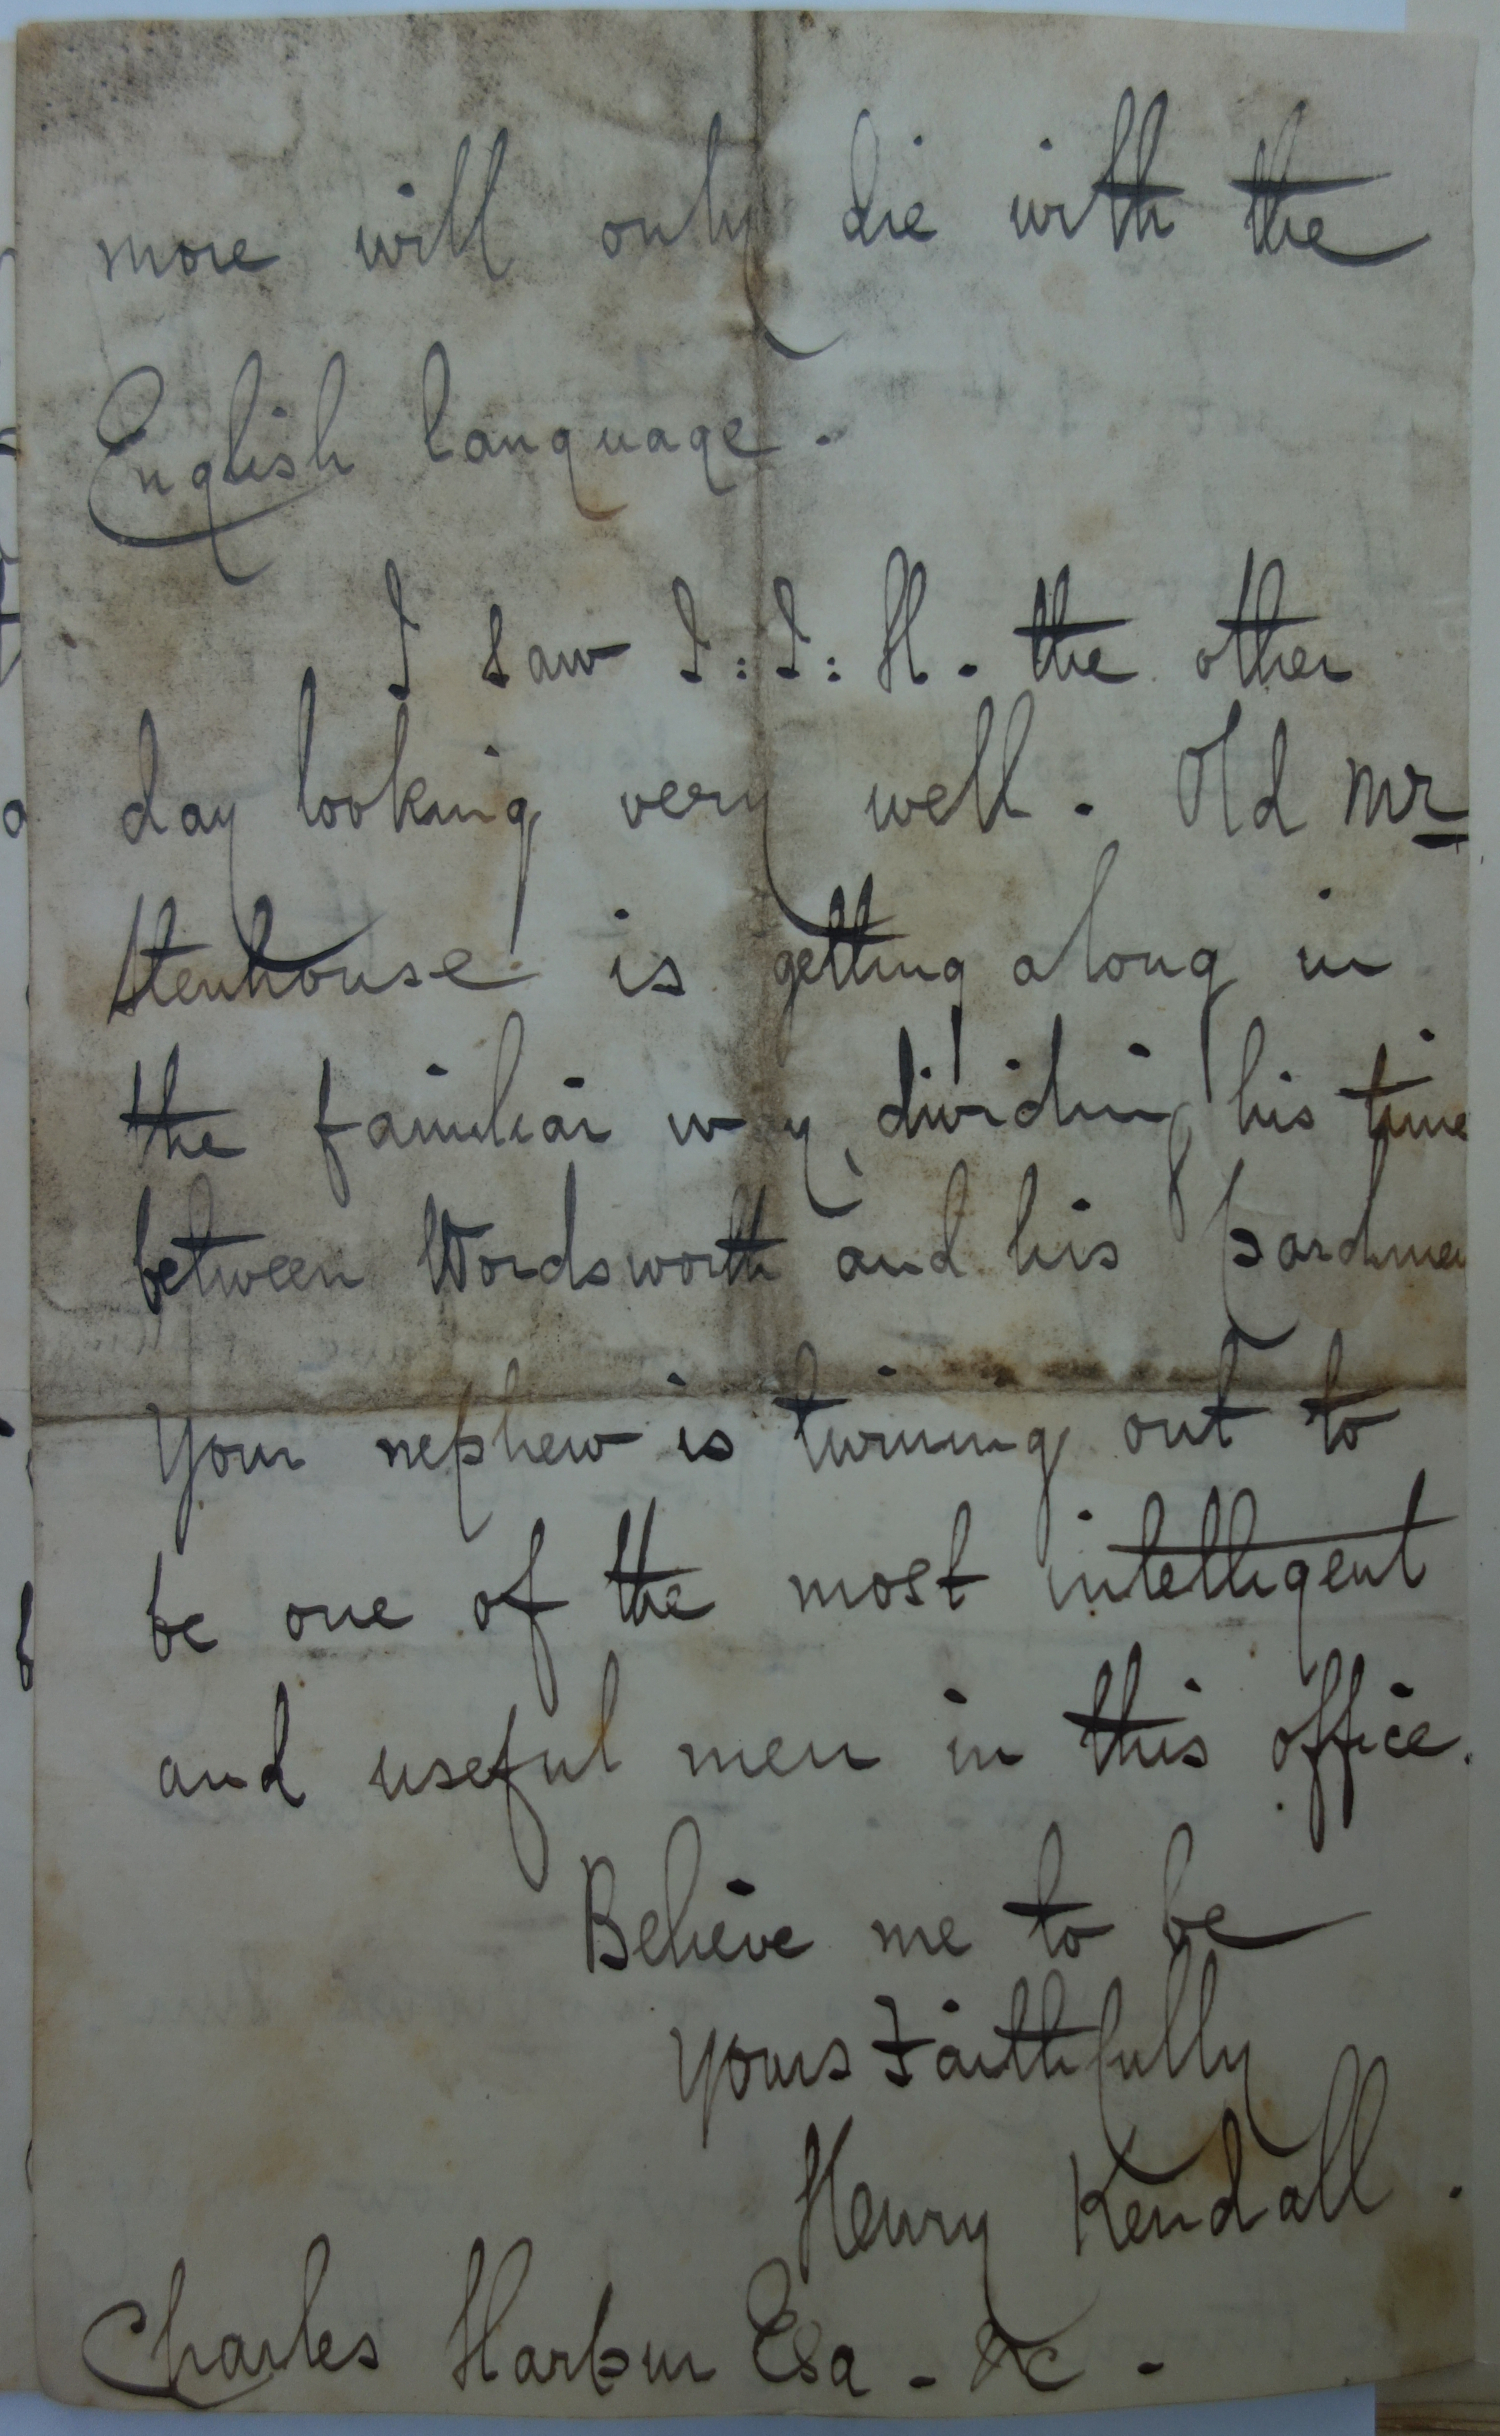 more will only die with the
English language.
I saw J: J: H. the other
day looking very well. Old Mr
Stenhouse is getting along in
the familiar way, dividing his time
between Wordsworth and his
Your nephew is turning out to
be one of the most intelligent
and useful men in this office.
Believe me to be
Yours Faithfully
Henry Kendall.
Charles Harpur Esq. &c.